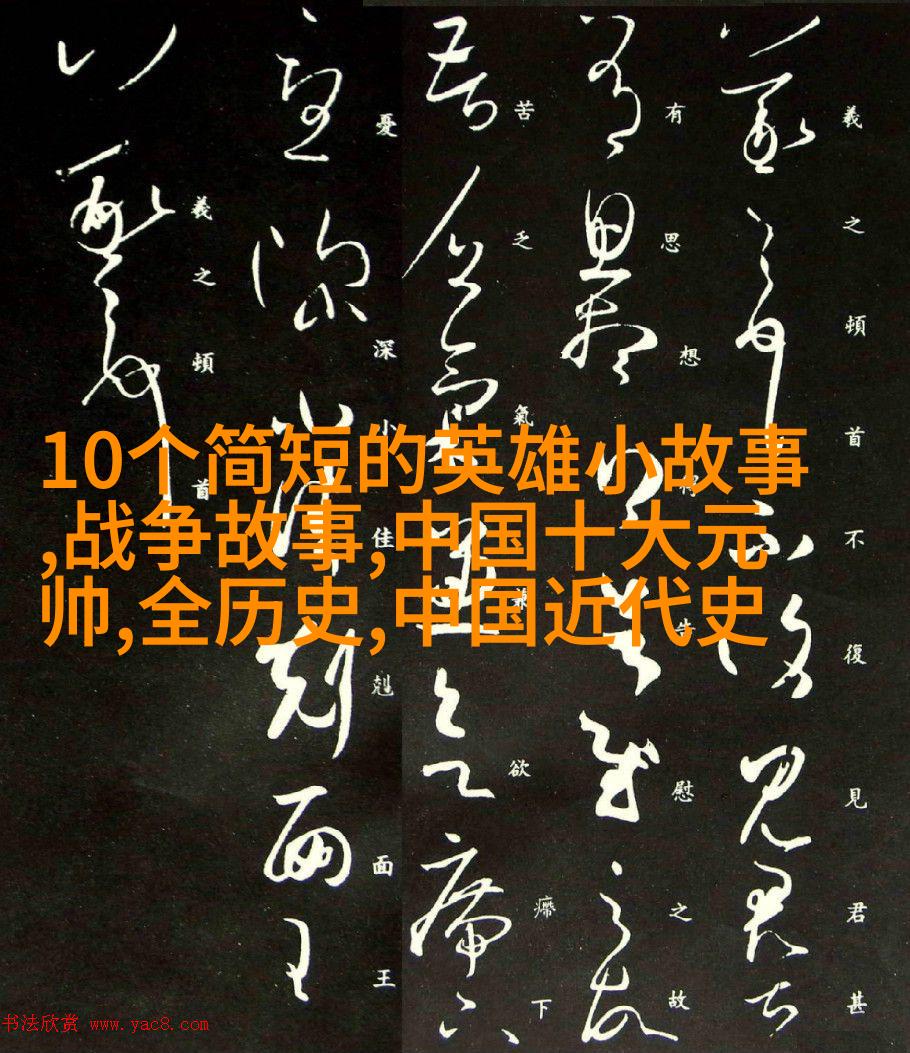 10个简短的英雄小故事
,战争故事,中国十大元
帅,全历史,中国近代史
羲之頓首不復見君甚
有思想得告慰之故
苦乏氣兼欲㿃下
憂深小佳剋面王
羲之頓首
书法欣赏 www.yac8.com